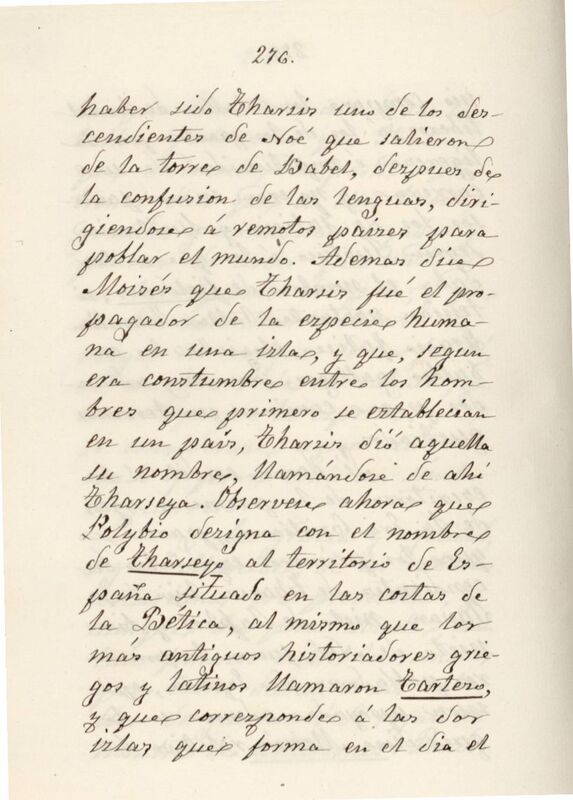 276.
haber sido Tharsis uno de los des-
cendientes de Noé que salieron
de la torre de Babel, despues de
la confusion de las lenguas, diri-
giendose á remotos paises para
poblar el mundo. Ademas dice
Moisés que Tharsis fué el pro-
pagador de la especie huma-
na en una isla, y que, segun
era constumbre entre los hom-
bres que primero se establecian
en un país, Tharsis dió aquella
su nombre, llamándose de ahí
Tharseya. Observese ahora que
Polybio designa con el nombre
de Tharseyo al territorio de Es-
paña situado en las costas de
la Bética, al mismo que los
más antiguos historiadores grie-
gos y latinos llamaron Tarteso,
y que corresponde á las dos
islas que forma en el dia el